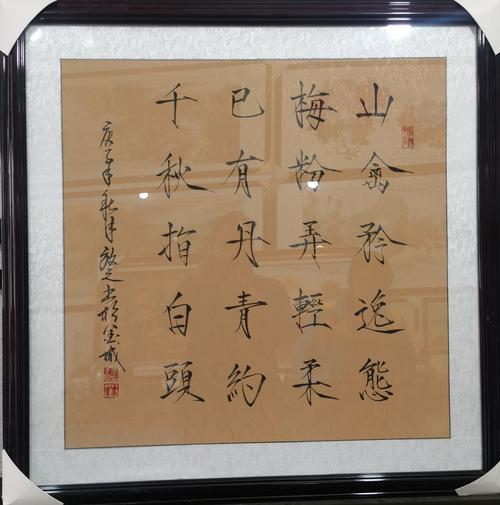 山禽矜逸態
梅粉弄輕柔
已有丹青約
千秋指白頭
庚子年秋月敬之书於金城